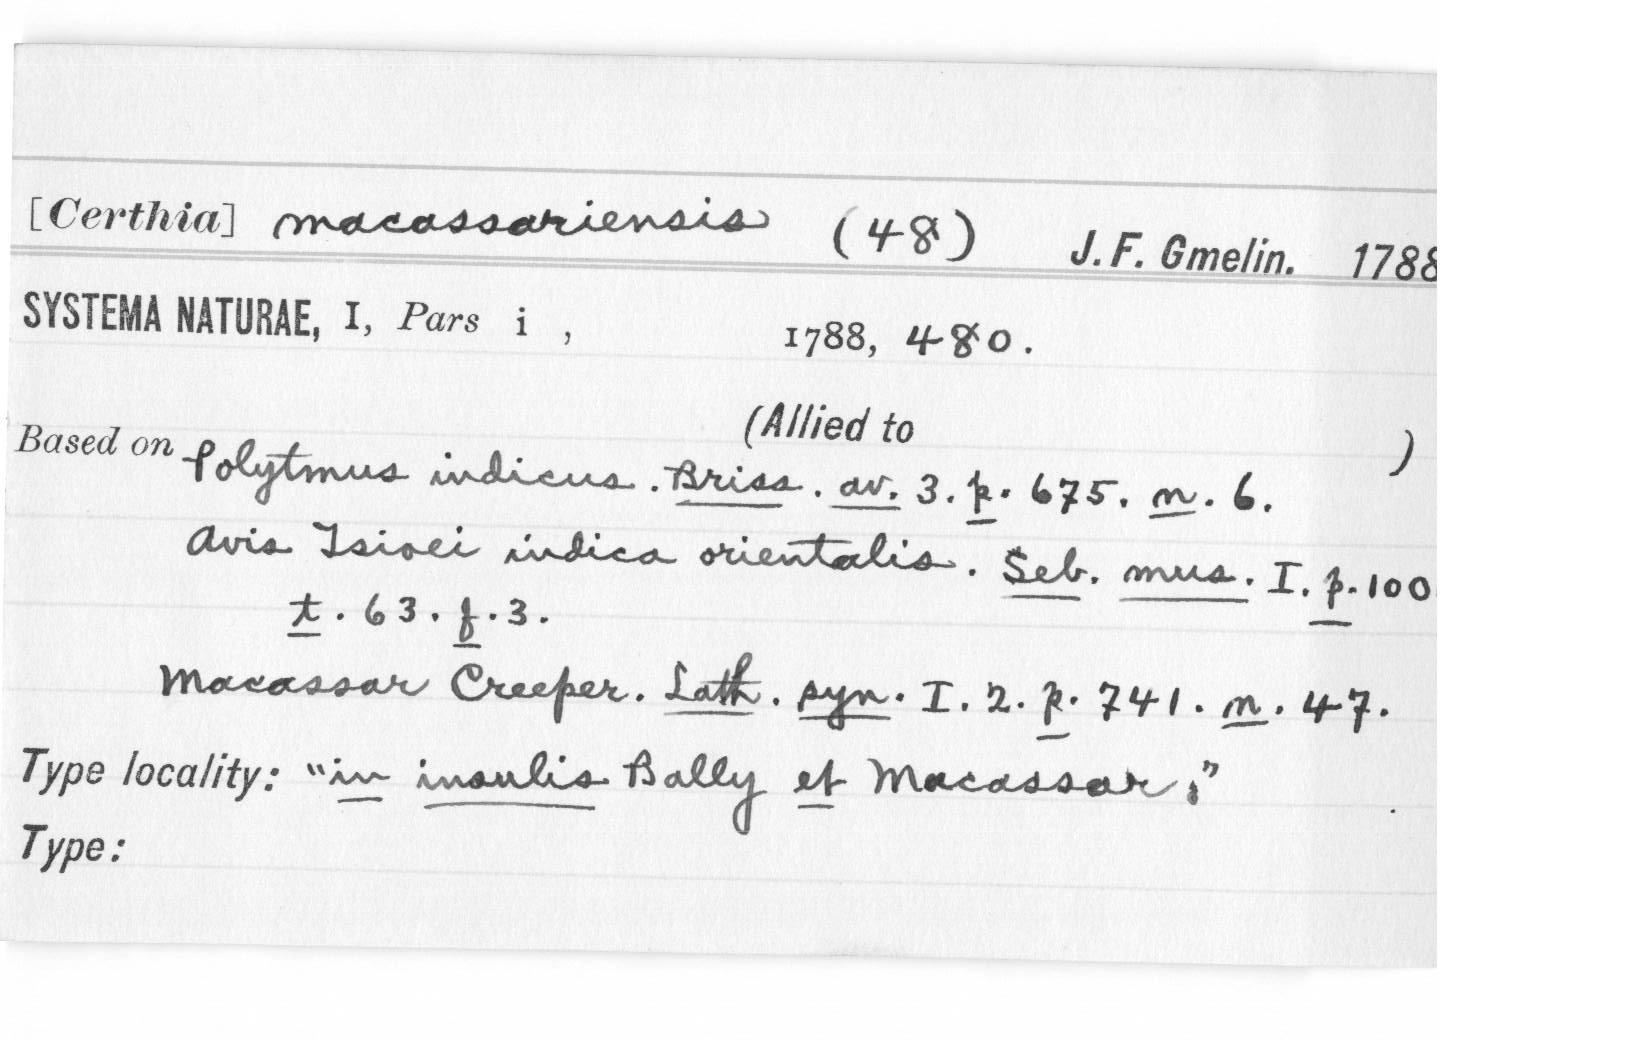 [Certhia] macassariensis (48) J. F. Gmelin. 1788
SYSTEMA NATURAE, I, Pars i , 1788, 480.
(Allied to )
Based on Polytmus indicus. Briss. av. 3. p. 675. n. 6.
Avis Tsioei indica orientalis. Seb. mus. I. p. 100
t. 63. f. 3.
Macassar Creeper. Lath. syn. I. 2. p. 741. n. 47.
Type locality: "in insulis Bally et Macassar;"
Type: